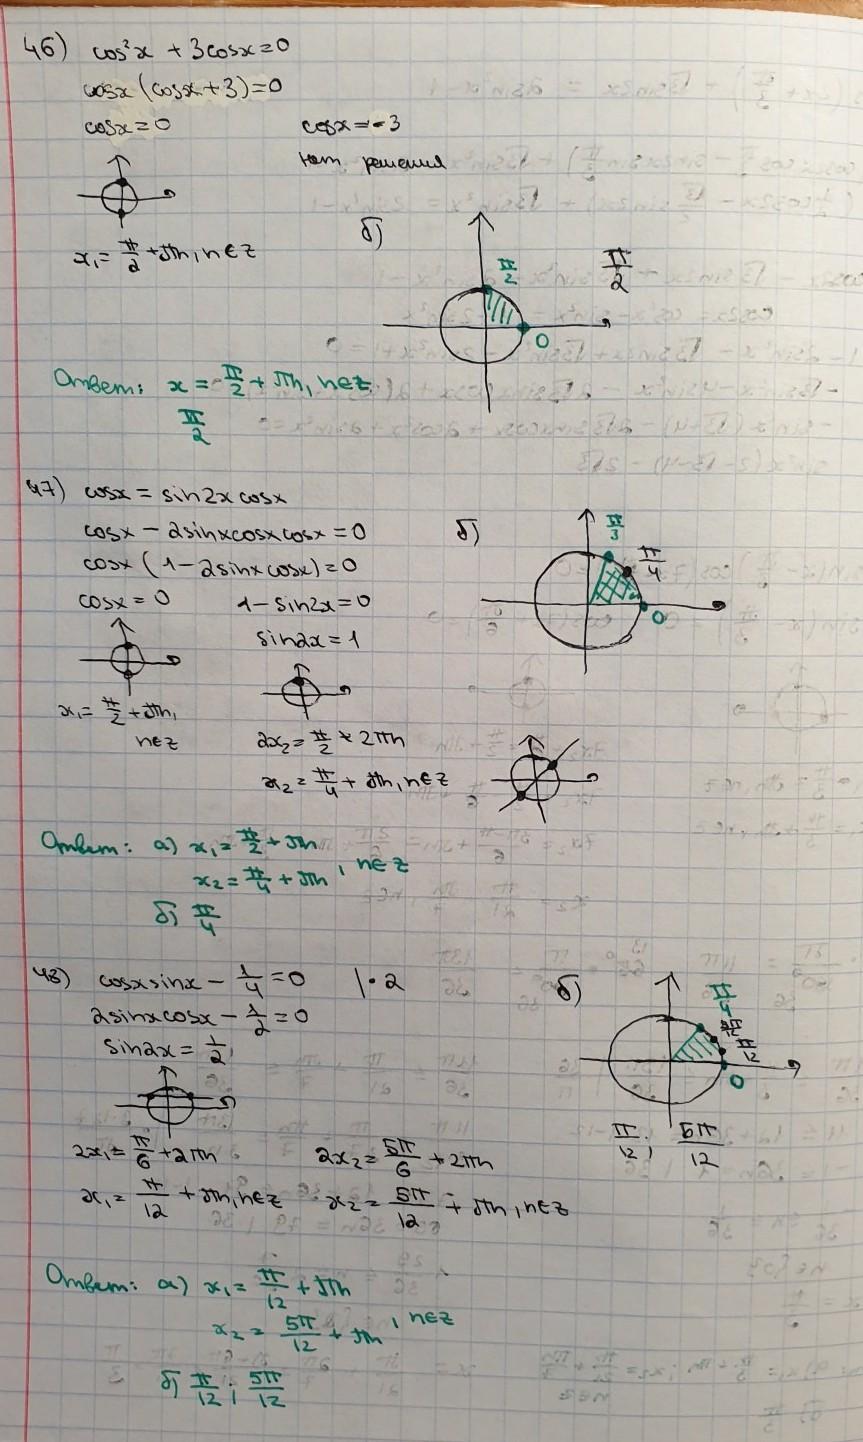 46) cos²x + 3cosx = 0
cosx (cosx + 3) = 0
cosx = 0    cosx = -3
нет решения
x₁ = π/2 + πn, n∈z
б)
π/2
0
π/2
Ответ: x = π/2 + πn, n∈z
π/2
47) cosx = sin2x cosx
cosx - 2sinxcosxcosx = 0
cosx (1 - 2sinxcosx) = 0
cosx = 0    1 - sin2x = 0
sin2x = 1
x₁ = π/2 + πn,
n∈z
2x₂ = π/2 + 2πn
x₂ = π/4 + πn, n∈z
б)
π/3
π/4
0
Ответ: а) x₁ = π/2 + πn
x₂ = π/4 + πn , n∈z
б) π/4
48) cosxsinx - 1/4 = 0 | · 2
2sinxcosx - 1/2 = 0
sin2x = 1/2
2x₁ = π/6 + 2πn    2x₂ = 5π/6 + 2πn
x₁ = π/12 + πn, n∈z    x₂ = 5π/12 + πn, n∈z
б)
π/4
π/12
0
π/12; 5π/12
Ответ: а) x₁ = π/12 + πn
x₂ = 5π/12 + πn , n∈z
б) π/12; 5π/12